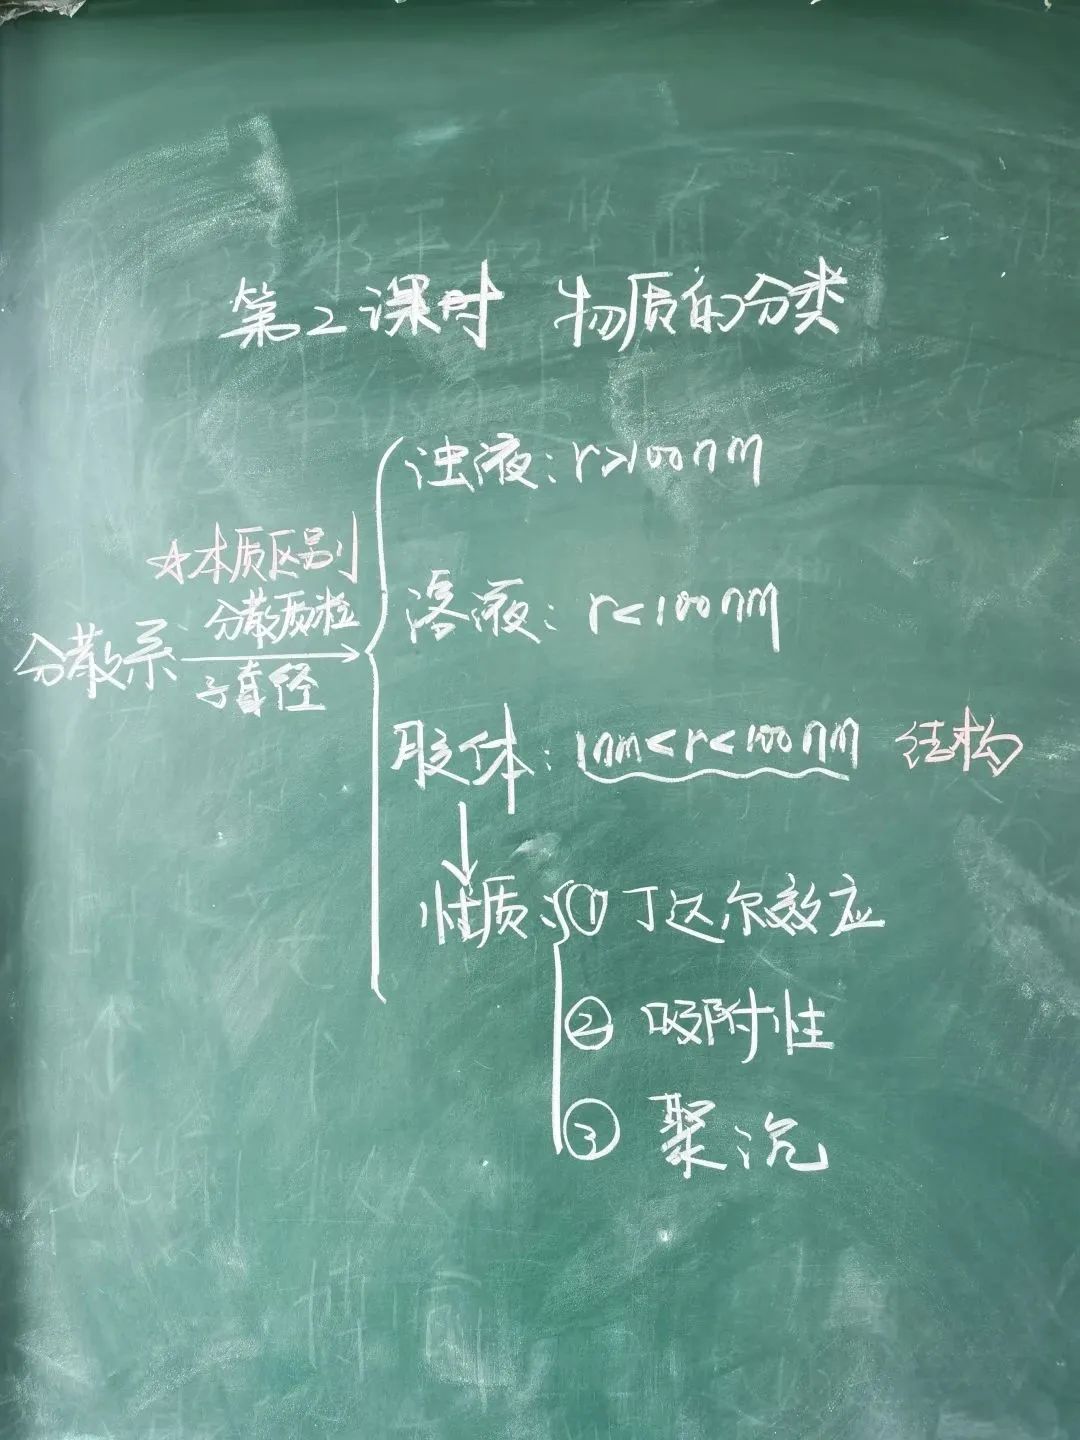 第2课时 物质的分类
浊液：r>100nm
☆本质区别
分散质粒
子直径
分散系
溶液：r<100nm
胶体：1nm<r<100nm 结构
性质：①丁达尔效应
②吸附性
③聚沉